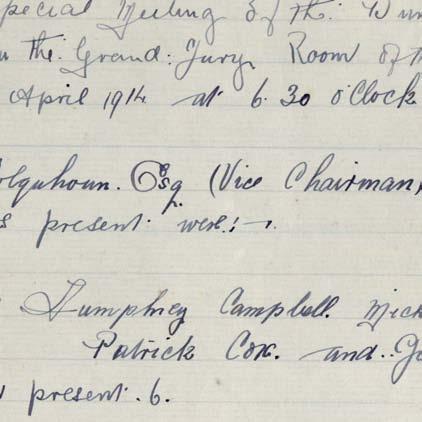 pecial Meeling of the: Dun
the: Grand: Jury Room of th
April 1914 at 6. 30 o'Clock
olquhoun. Esq (Vice Chairman)
s present were:-
Humphrey Campbell. Mick
Patrick Cox. and.
present. 6.